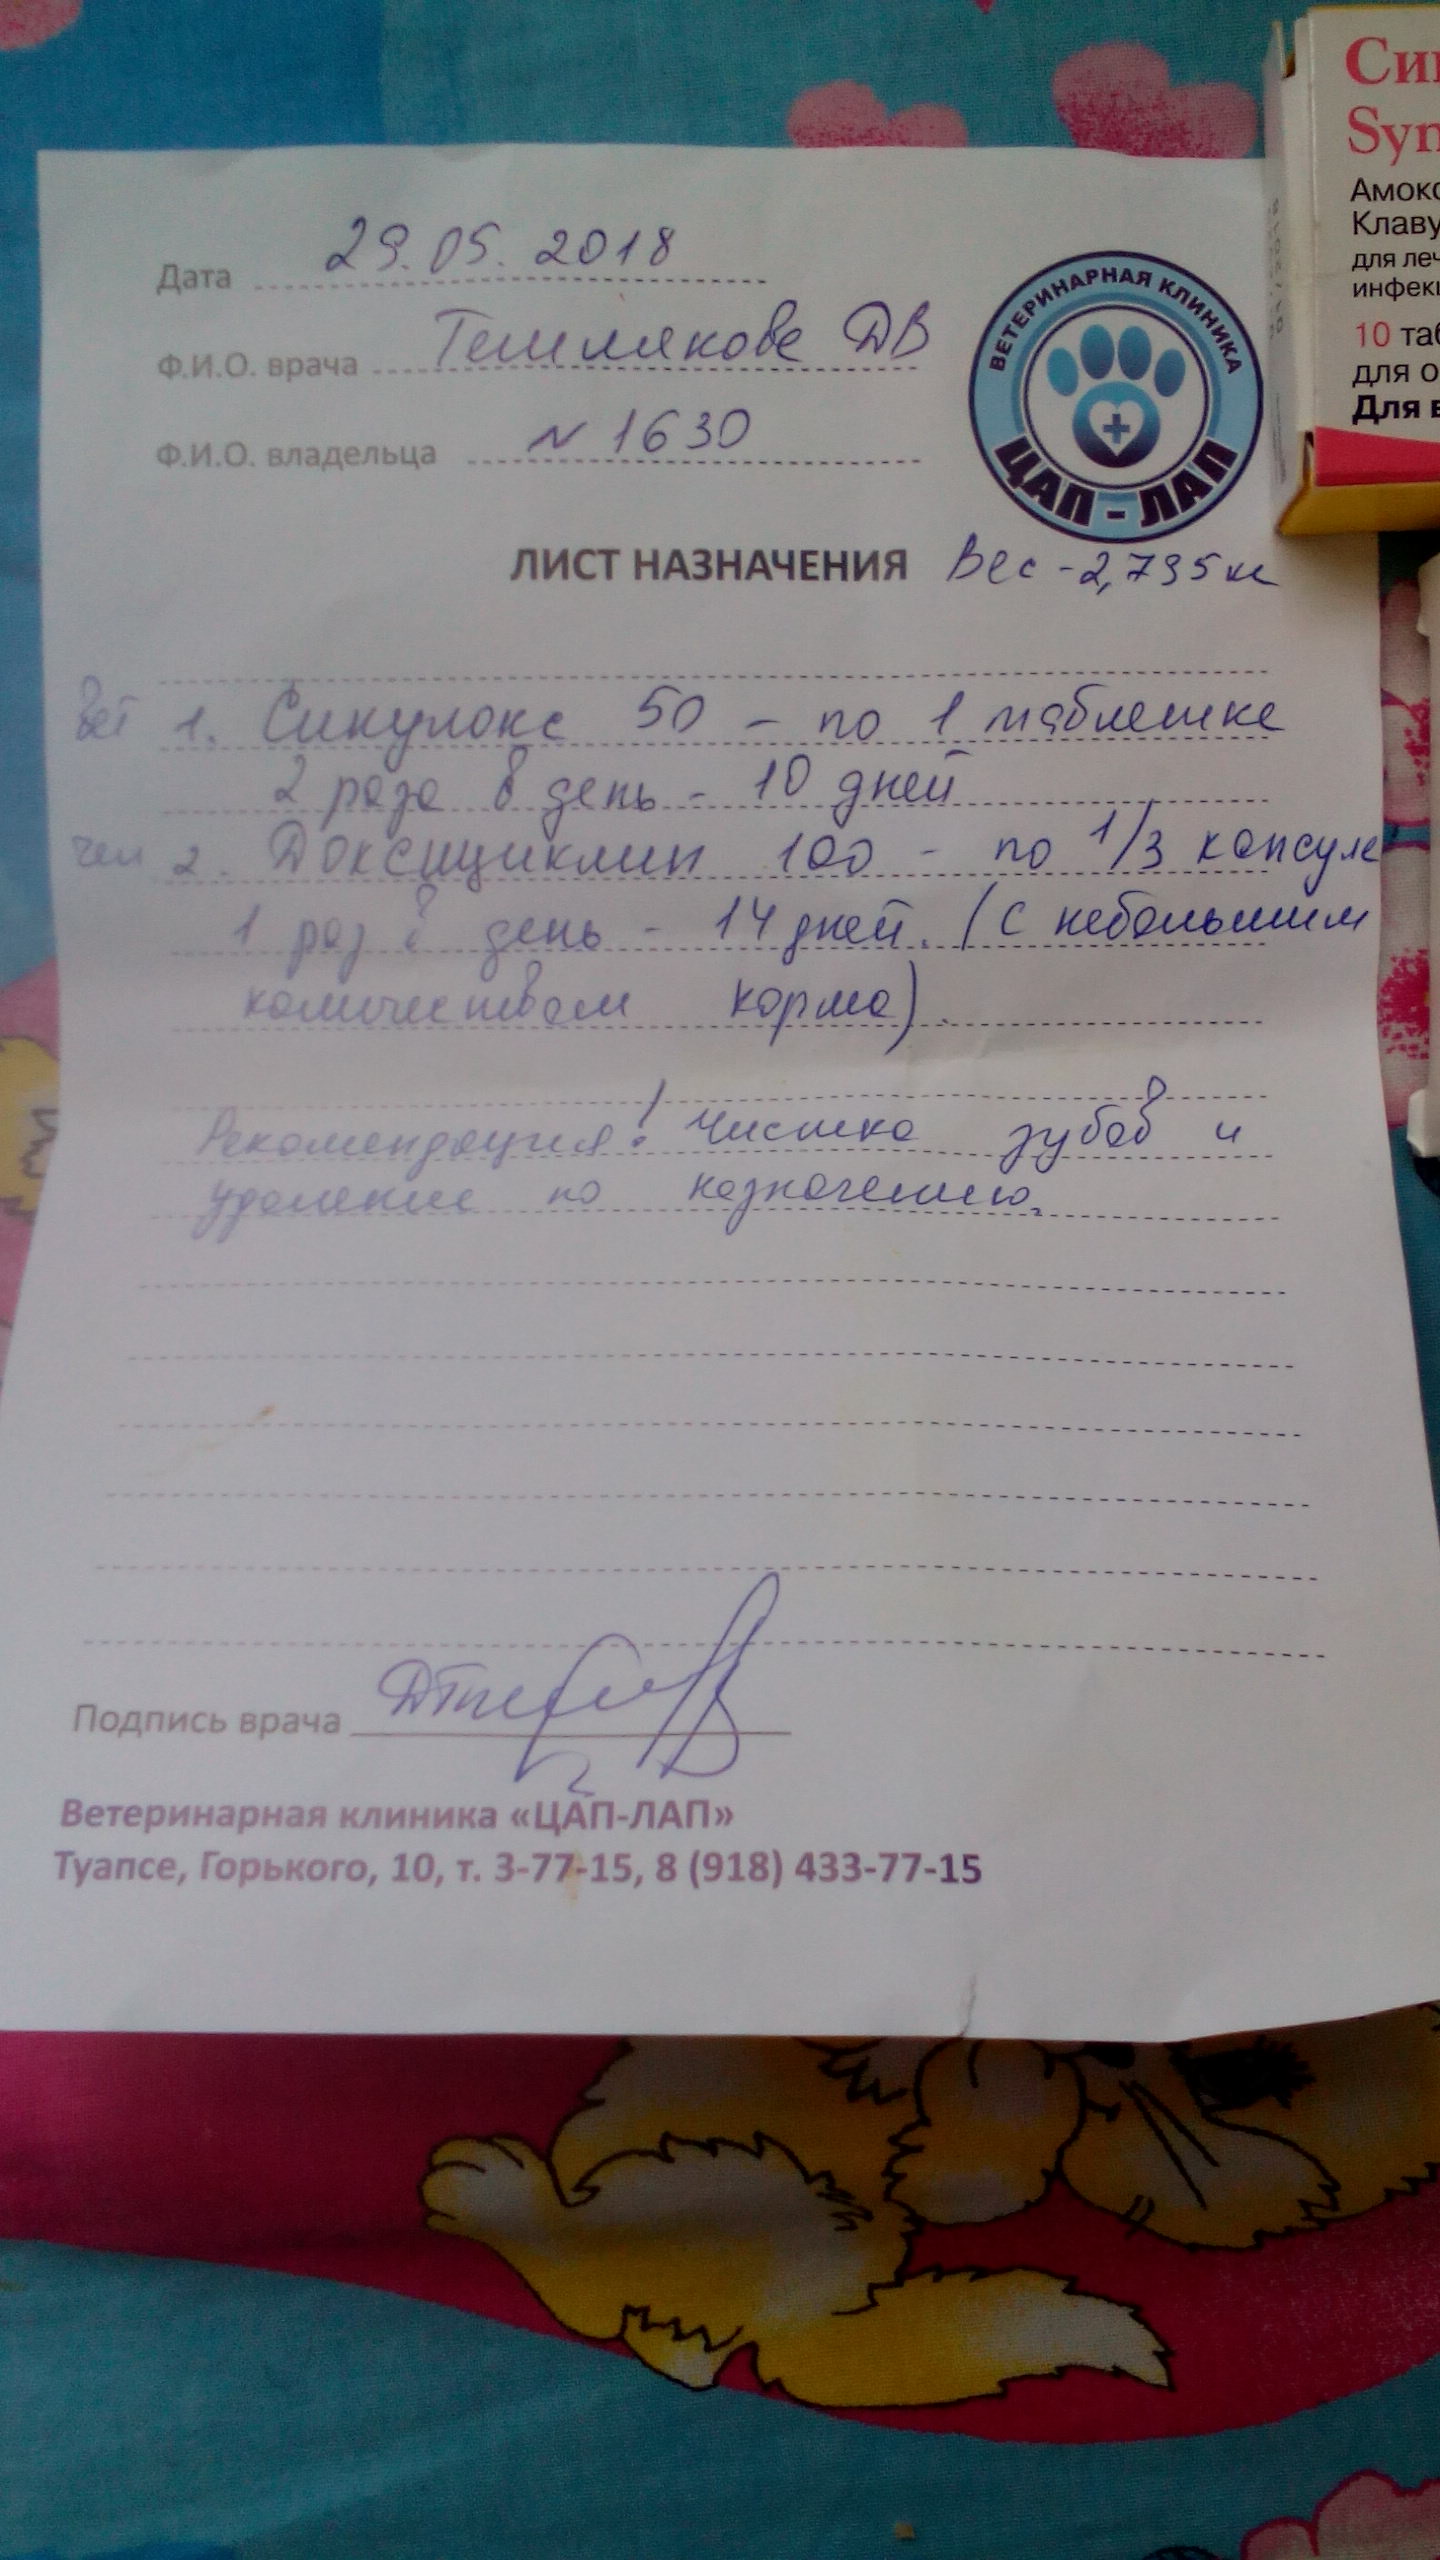 Дата 29.05.2018
Ф.И.О. врача ДВ
Ф.И.О. владельца N 1630
ВЕТЕРИНАРНАЯ КЛИНИКА
ЦАП-ЛАП
ЛИСТ НАЗНАЧЕНИЯ Вес - 2,795 кг
Вет 1. Синулокс 50 - по 1 таблетке
2 раза в день - 10 дней
чел 2. Доксициклин 100 - по 1/3 капсуле
1 раз в день - 14 дней. (с небольшим
количеством корма).
Рекомендация! Чистка зубов и
удаление по назначению.
Подпись врача
Ветеринарная клиника «ЦАП-ЛАП»
Туапсе, Горького, 10, т. 3-77-15, 8 (918) 433-77-15
Син
Syn
Амокс
Клаву
для леч
инфекц
10 таб
для о
Для в